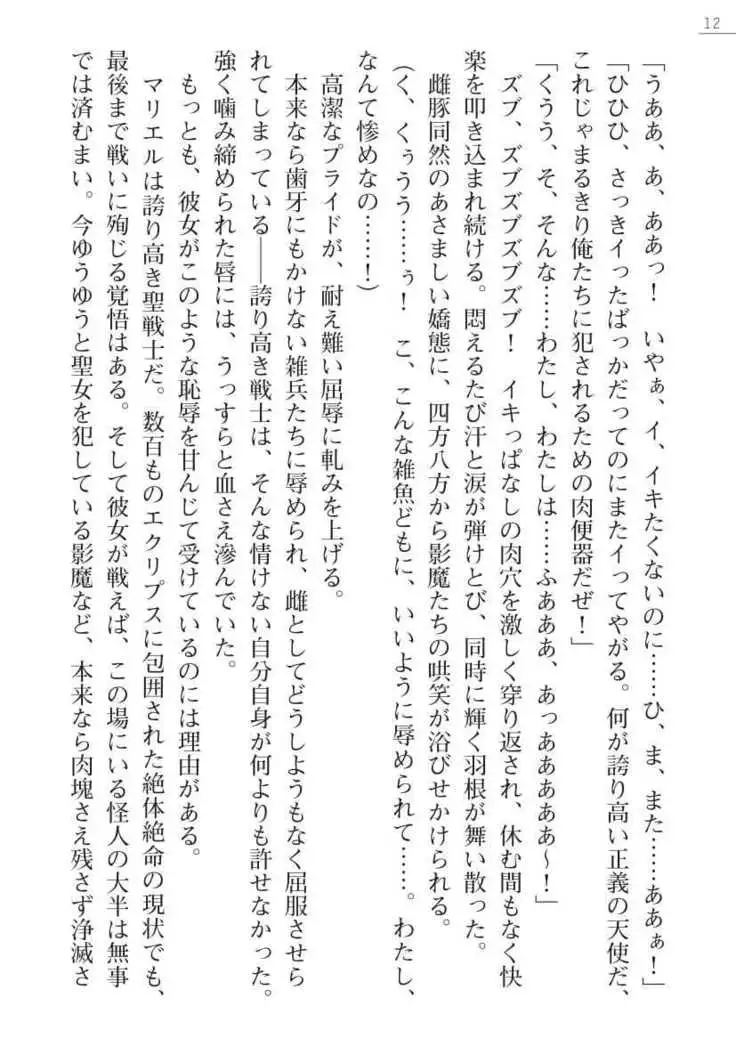 12
「うああ、あ、ああっ！　いやぁ、イ、イキたくないのに……ひ、ま、また……ああぁ！」
「ひひひ、さっきイったばっかだってのにまたイってやがる。何が誇り高い正義の天使だ、
これじゃまるきり俺たちに犯されるための肉便器だぜ！」
「くうう、そ、そんな……わたし、わたしは……ふあああ、あっああああああ～！」
ズブ、ズブズブズブズブ！　イキっぱなしの肉穴を激しく穿り返され、休む間もなく快
楽を叩き込まれ続ける。悶えるたび汗と涙が弾けとび、同時に輝く羽根が舞い散った。
雌豚同然のあさましい嬌態に、四方八方から影魔たちの哄笑が浴びせかけられる。
（く、くぅうう……ぅ！　こ、こんな雑魚どもに、いいように辱められて……。わたし、
なんて惨めなの……！）
高潔なプライドが、耐え難い屈辱に軋みを上げる。
本来なら歯牙にもかけない雑兵たちに辱められ、雌としてどうしようもなく屈服させら
れてしまっている――誇り高き戦士は、そんな情けない自分自身が何よりも許せなかった。
強く噛み締められた唇には、うっすらと血さえ滲んでいた。
もっとも、彼女がこのような恥辱を甘んじて受けているのには理由がある。
マリエルは誇り高き聖戦士だ。数百ものエクリプスに包囲された絶体絶命の現状でも、
最後まで戦いに殉じる覚悟はある。そして彼女が戦えば、この場にいる怪人の大半は無事
では済むまい。今ゆうゆうと聖女を犯している影魔など、本来なら肉塊さえ残さず浄滅さ